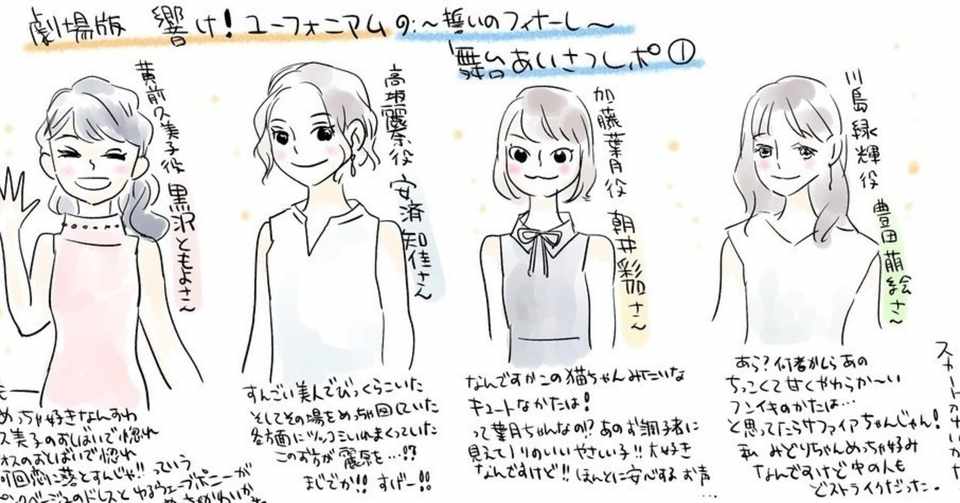 劇場版 響け!ユーフォニアムの:~誓いのフィナーレ~
舞台あいさつレポ①
黄前久美子役 黒沢ともよさん
高坂麗奈役 安済知佳さん
加藤葉月役 朝井彩加さ〜
川島緑輝役 豊田萌絵さ〜
めっちゃ好きなんすわ
久美子のおしばいで惚れ
何回恋に落とすんじゃ!!っていう
のドレスとゆるウェーブポニーが
すんごい美人でびっくらこいた
そしてその場をめっちゃ回していた
各方面にツッコミいれまくっていた
このお方が麗奈を…!?
まじでか!!すげー!!
なんですかこの猫ちゃんみたいな
キュートなかたは!
って葉月ちゃんなの!?あのお調子者に
見えてノリのいいやさしい子!!大好き
なんですけど!!ほんとに安心するお声…
あら?何者かしらあの
ちっこくて甘くやわらか〜い
フンイキのかたは…
と思ってたらサファイアちゃんじゃん!
私 みどりちゃんめっちゃ好み
なんですけど中の人も
どストライクだった。